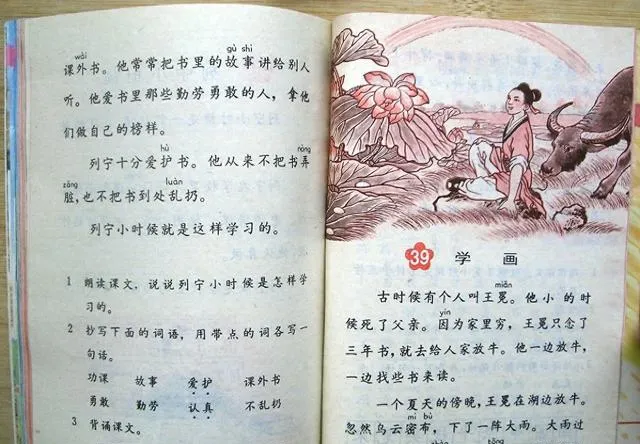 wài gù shi
课外书。他常常把书里的故事讲给别人
听。他爱书里那些勤劳勇敢的人，拿他
们做自己的榜样。
hù nòng
列宁十分爱护书。他从来不把书弄
zāng luàn
脏，也不把书到处乱扔。
列宁小时候就是这样学习的。
1 朗读课文，说说列宁小时候是怎样学
习的。
2 抄写下面的词语，用带点的词各写一
句话。
功课 故事 爱护 课外书
勇敢 勤劳 认真 不乱扔
3 背诵课文。
39 学画
miǎn
古时候有个人叫王冕。他小的时
yīn
候死了父亲。因为家里穷，王冕只念了
三年书，就去给人家放牛。他一边放牛，
一边找些书来读。
一个夏天的傍晚，王冕在湖边放牛。
mì bù
忽然乌云密布，下了一阵大雨。大雨过